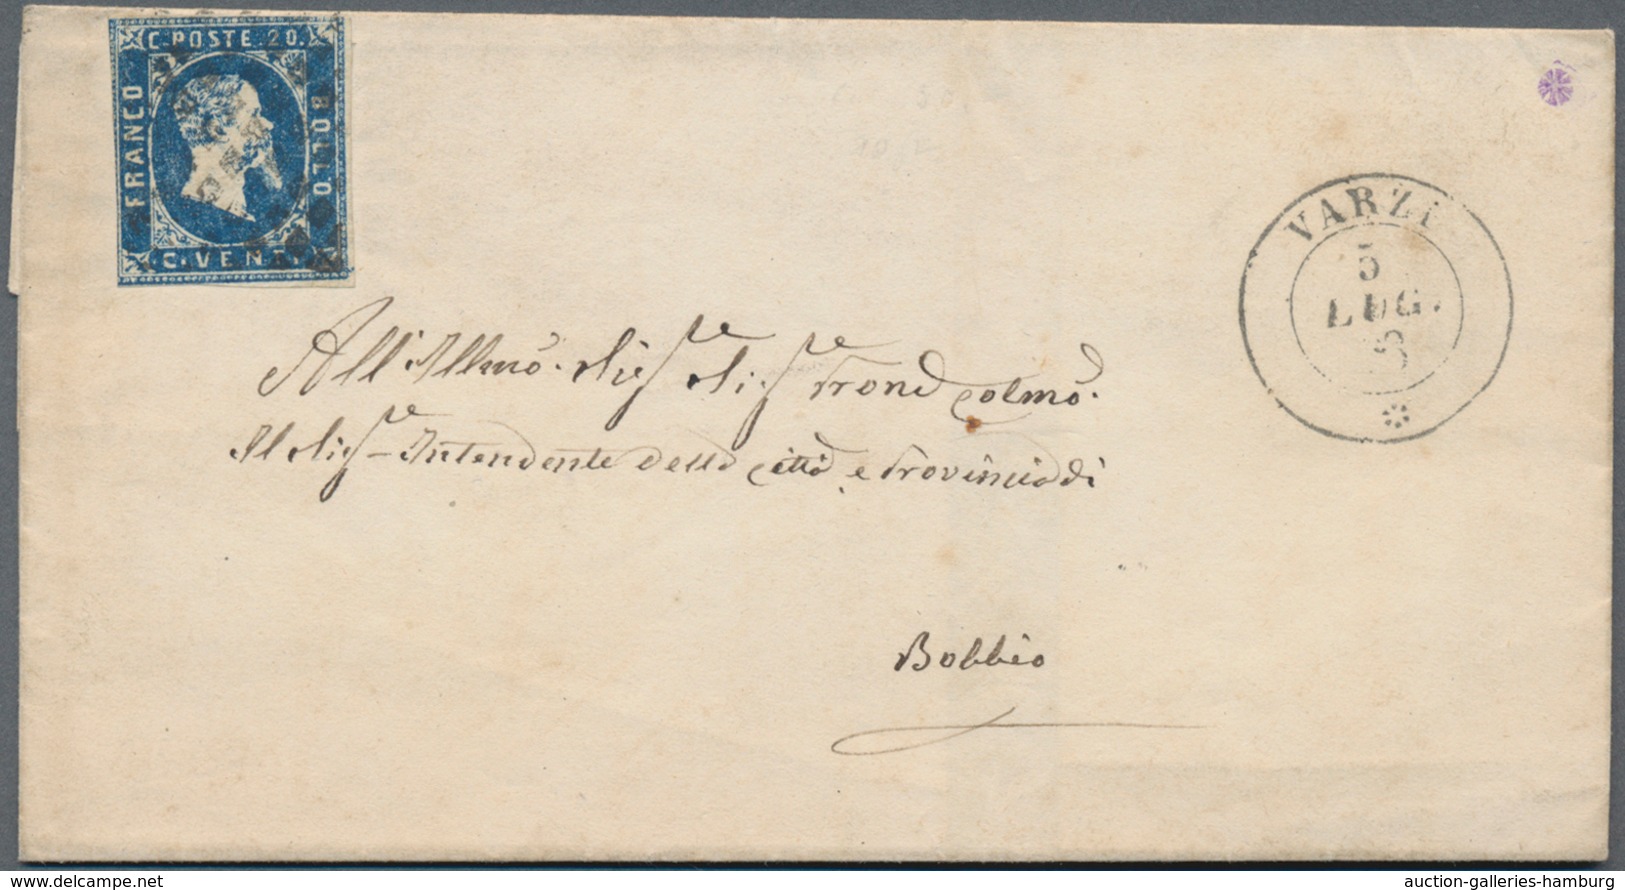 C. POSTE. 20.
FRANCO
BOLLO
C. VENTI
VARZI
5
LUG.
All' Illmo. Sigr Sigr Prone Colmo.
Il Sigr Intendente della città e Provincia di
Bobbio
delcampe.net
auction-galleries-hamburg